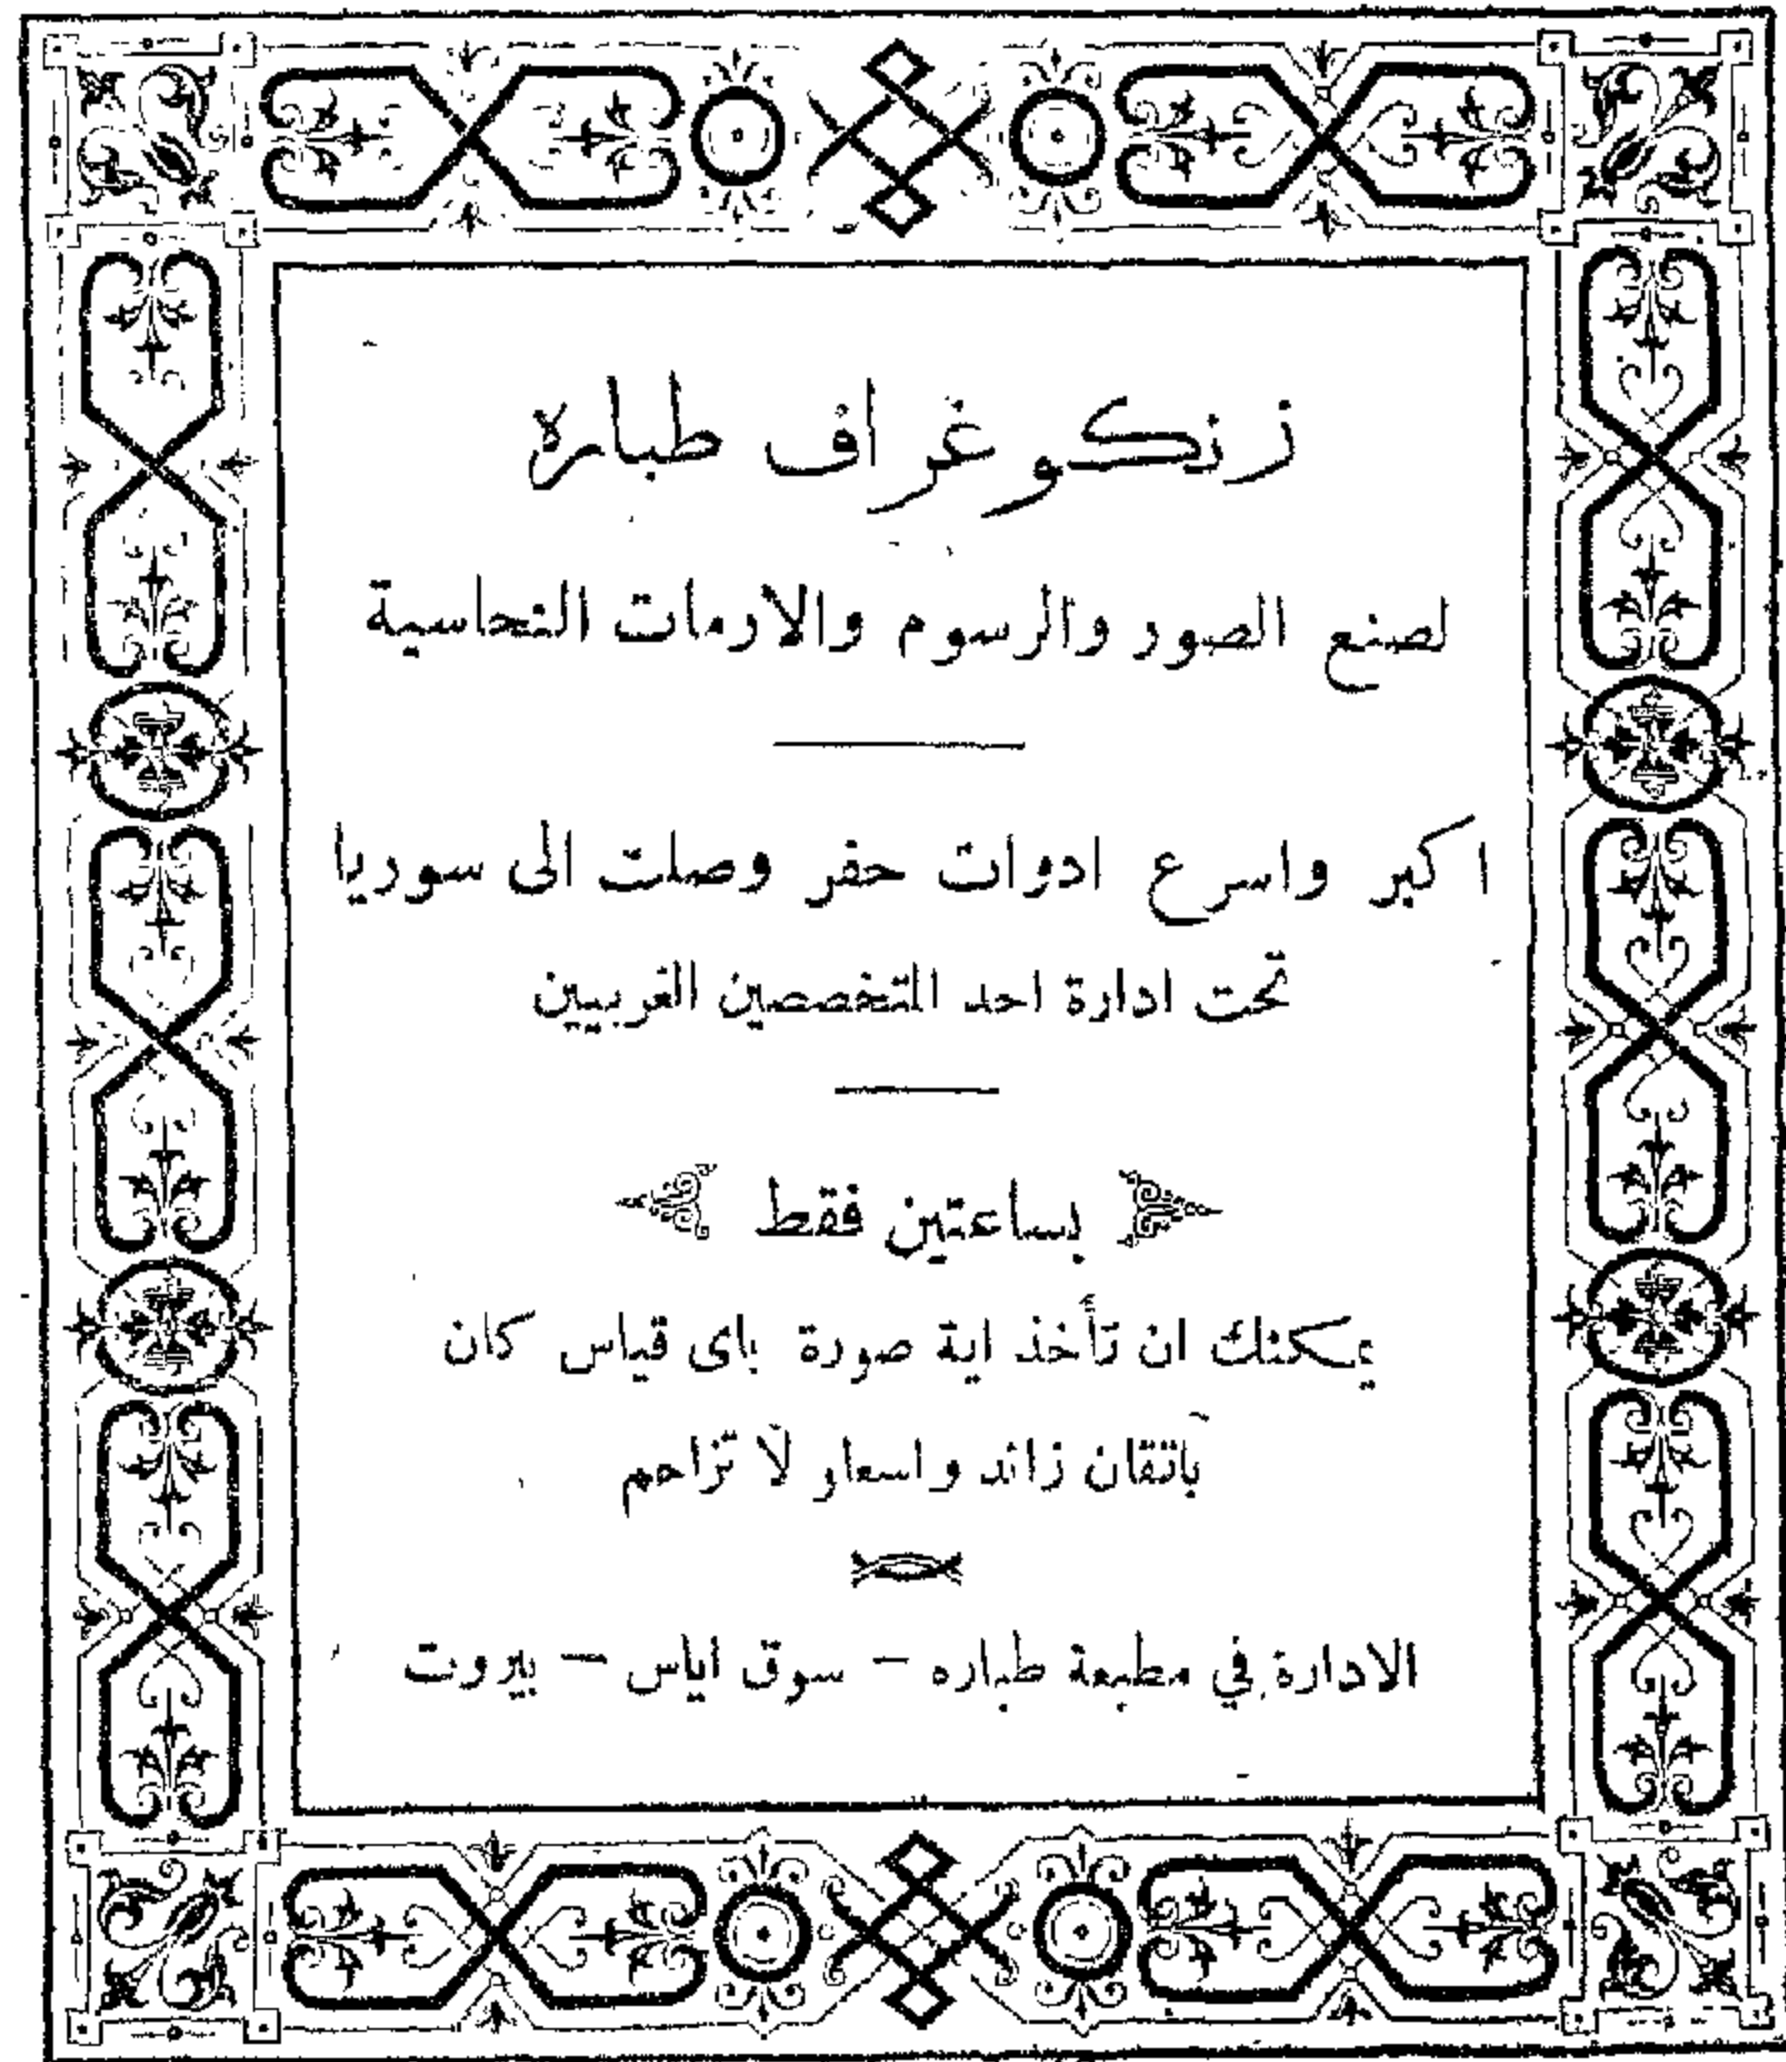 زنكوغراف طباره
لصنع الصور والرسوم والارمات النحاسية
اكبر واسرع ادوات حفر وصلت الى سوريا
تحت ادارة احد المتخصصين الغربيين
بساعتين فقط
يمكنك ان تأخذ اية صورة باى قياس كان
باتقان زائد واسعار لا تزاحم
الادارة في مطبعة طباره – سوق اياس – بيروت